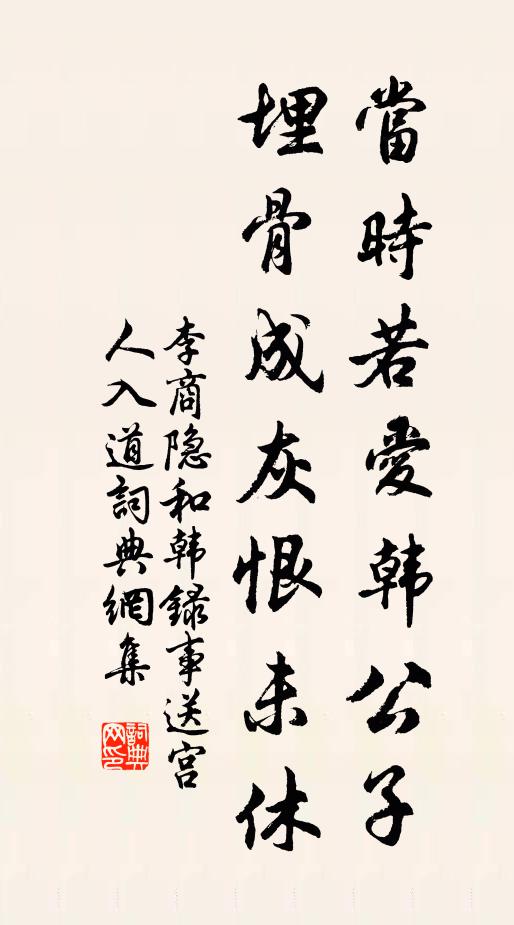 當時若愛韩公子
埋骨成灰恨未休
李商隐和韩録事送宫
人入道詞典網集
詞典
网印